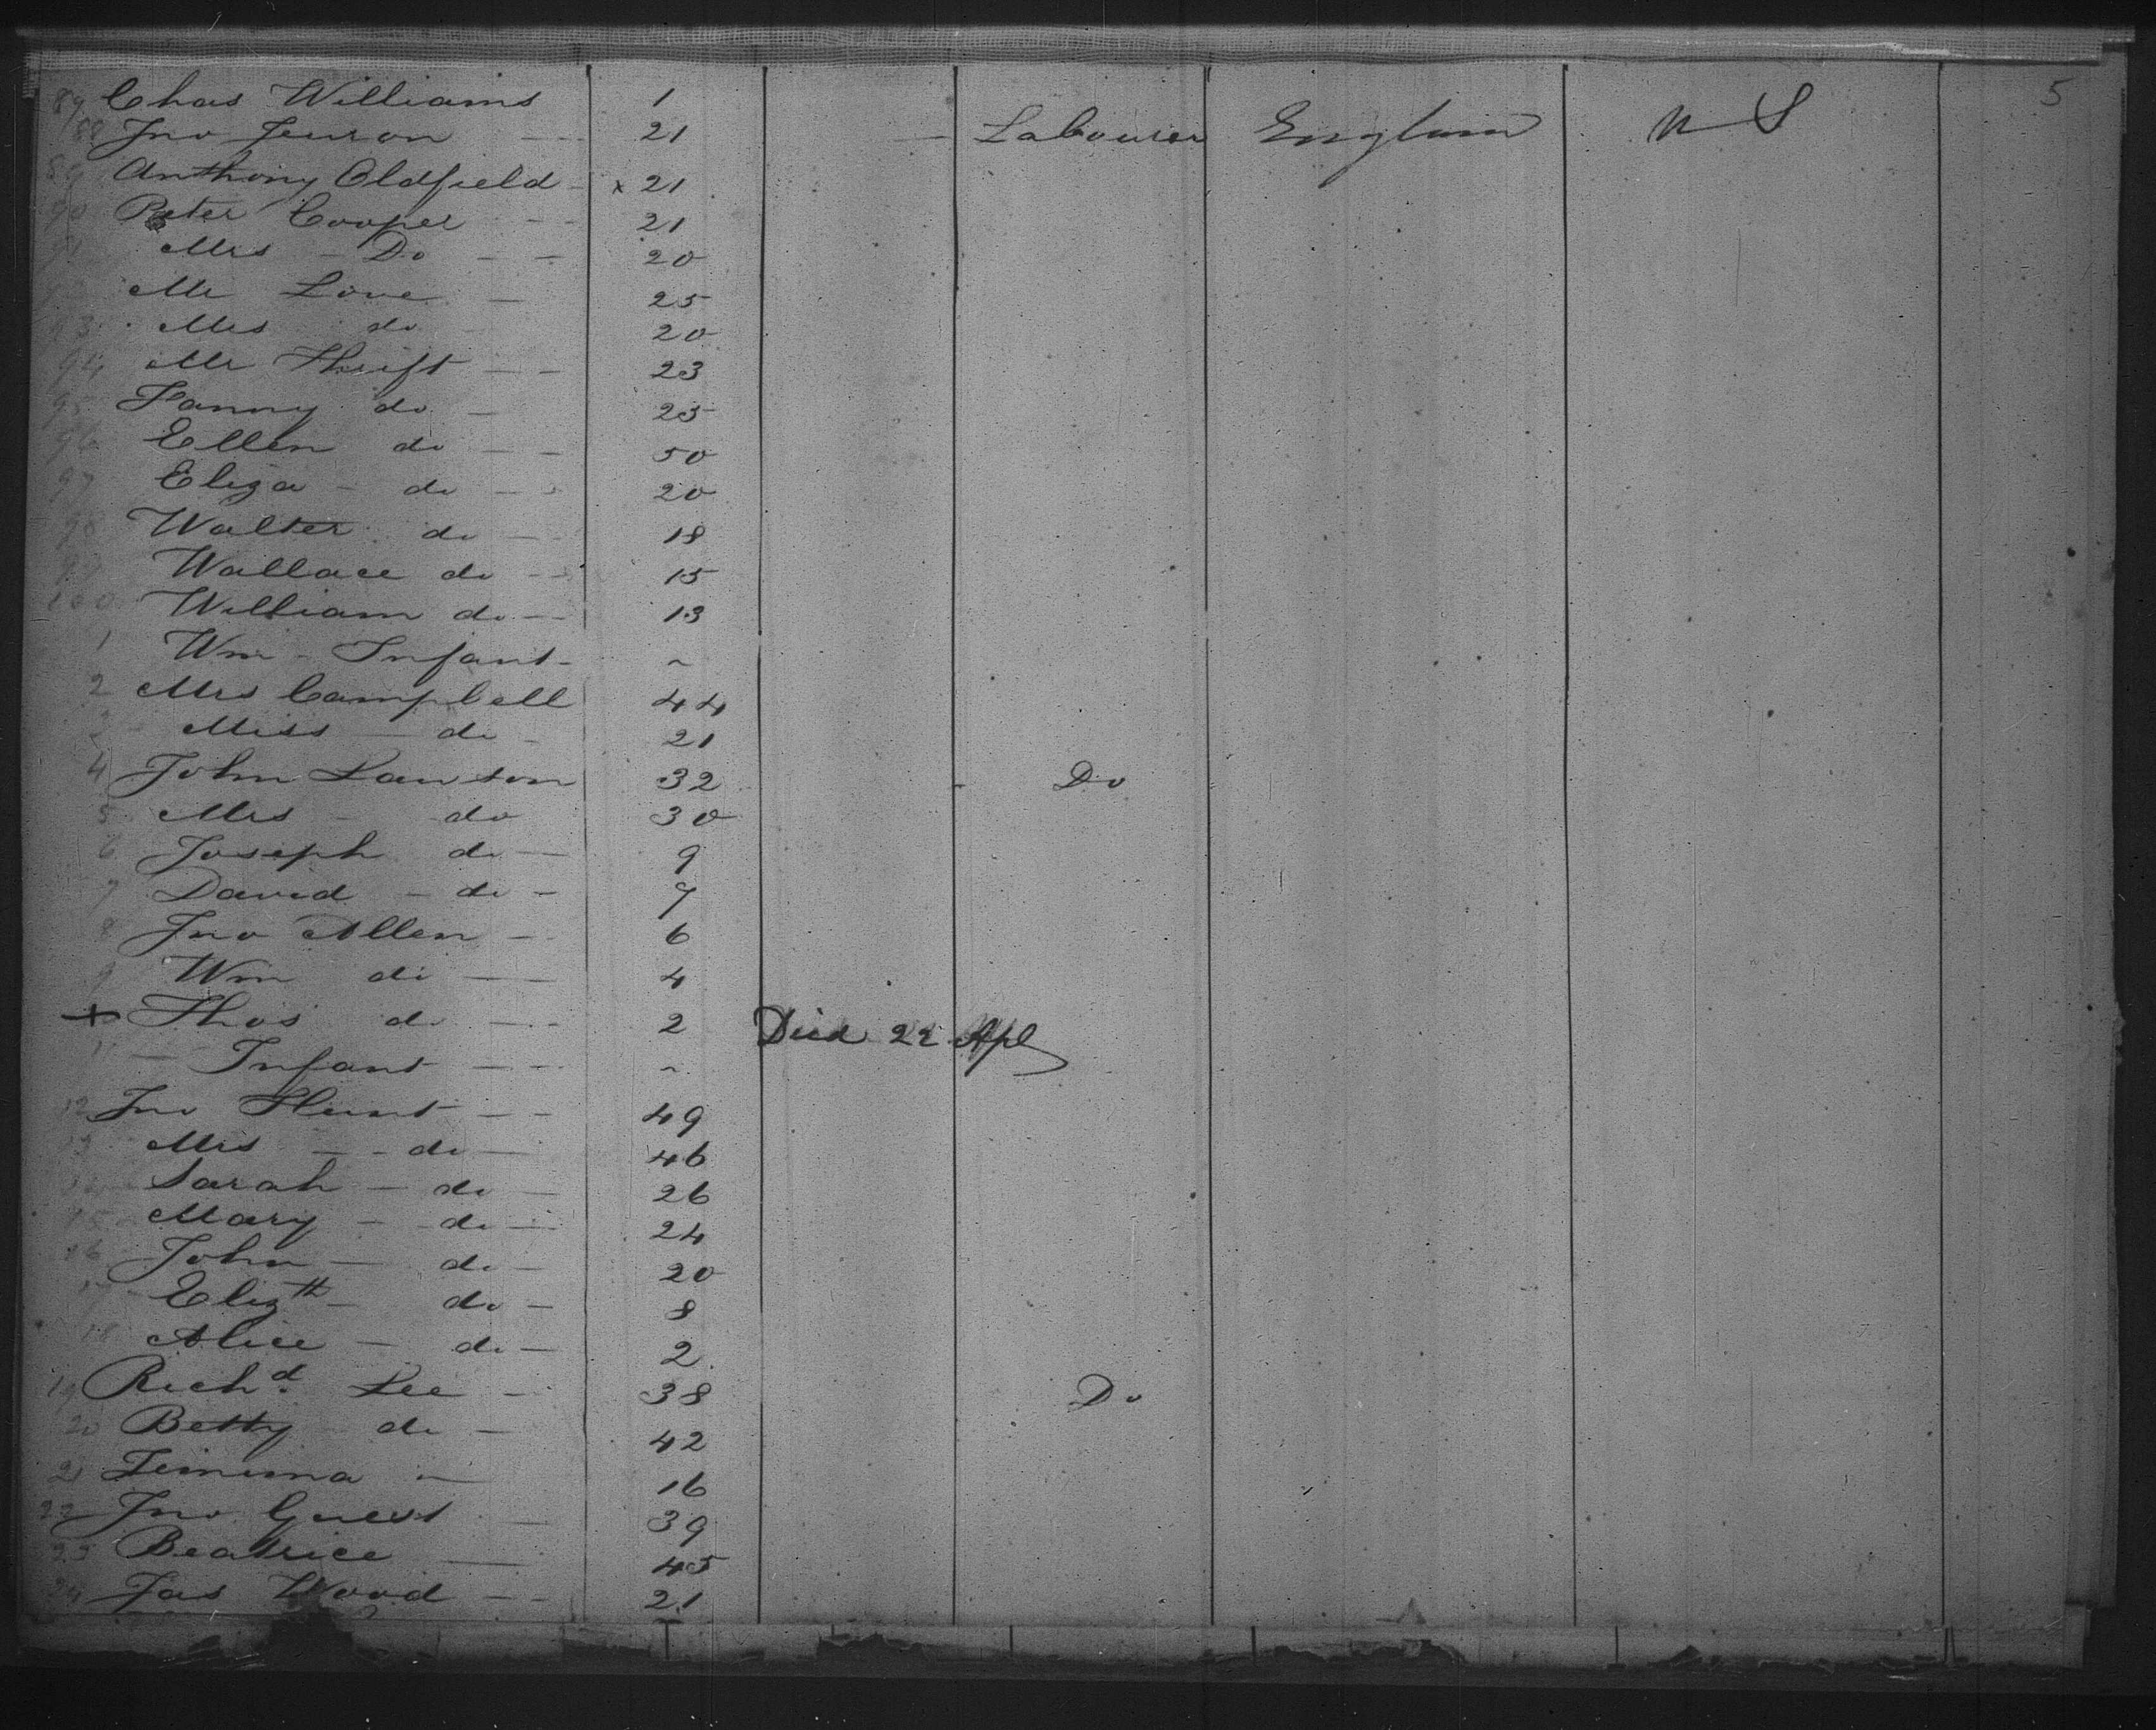 5
87 Chas Williams 1
88 Jno 21 — Labourer England U S
89 Anthony Oldfield - x 21
90 Peter Cooper - - 21
91 Mrs - Do - - 20
Mr Love - 25
93 Mrs do - 20
94 Mr Thrift - - 23
95 Fanny do - 25
96 Ellen do - - 50
97 Eliza - do - - 20
98 Walter do - 18
99 Wallace do - - 15
100 William do - - 13
1 Wm - Infant - ~
2 Mrs Campbell 44
3 Miss - do - 21
4 John Lawton 32 - Do
5 Mrs - do 30
6 Joseph do - 9
7 David - do - 7
8 Jno Allen - 6
9 Wm do - 4
+ Thos do - - 2 Died 22 Apl
11 - Infant - - ~
12 Jno Hunt - - 49
13 Mrs - - do - 46
14 Sarah - do - 26
15 Mary - do - 24
16 John - do - 20
17 Elizth - do - 8
18 Alice - do - 2
19 Richd Lee - 38 Do
20 Betty do - 42
21 Jemima - 16
22 Jno Guest - 39
23 Beatrice - 45
24 Jas Wood - - 21